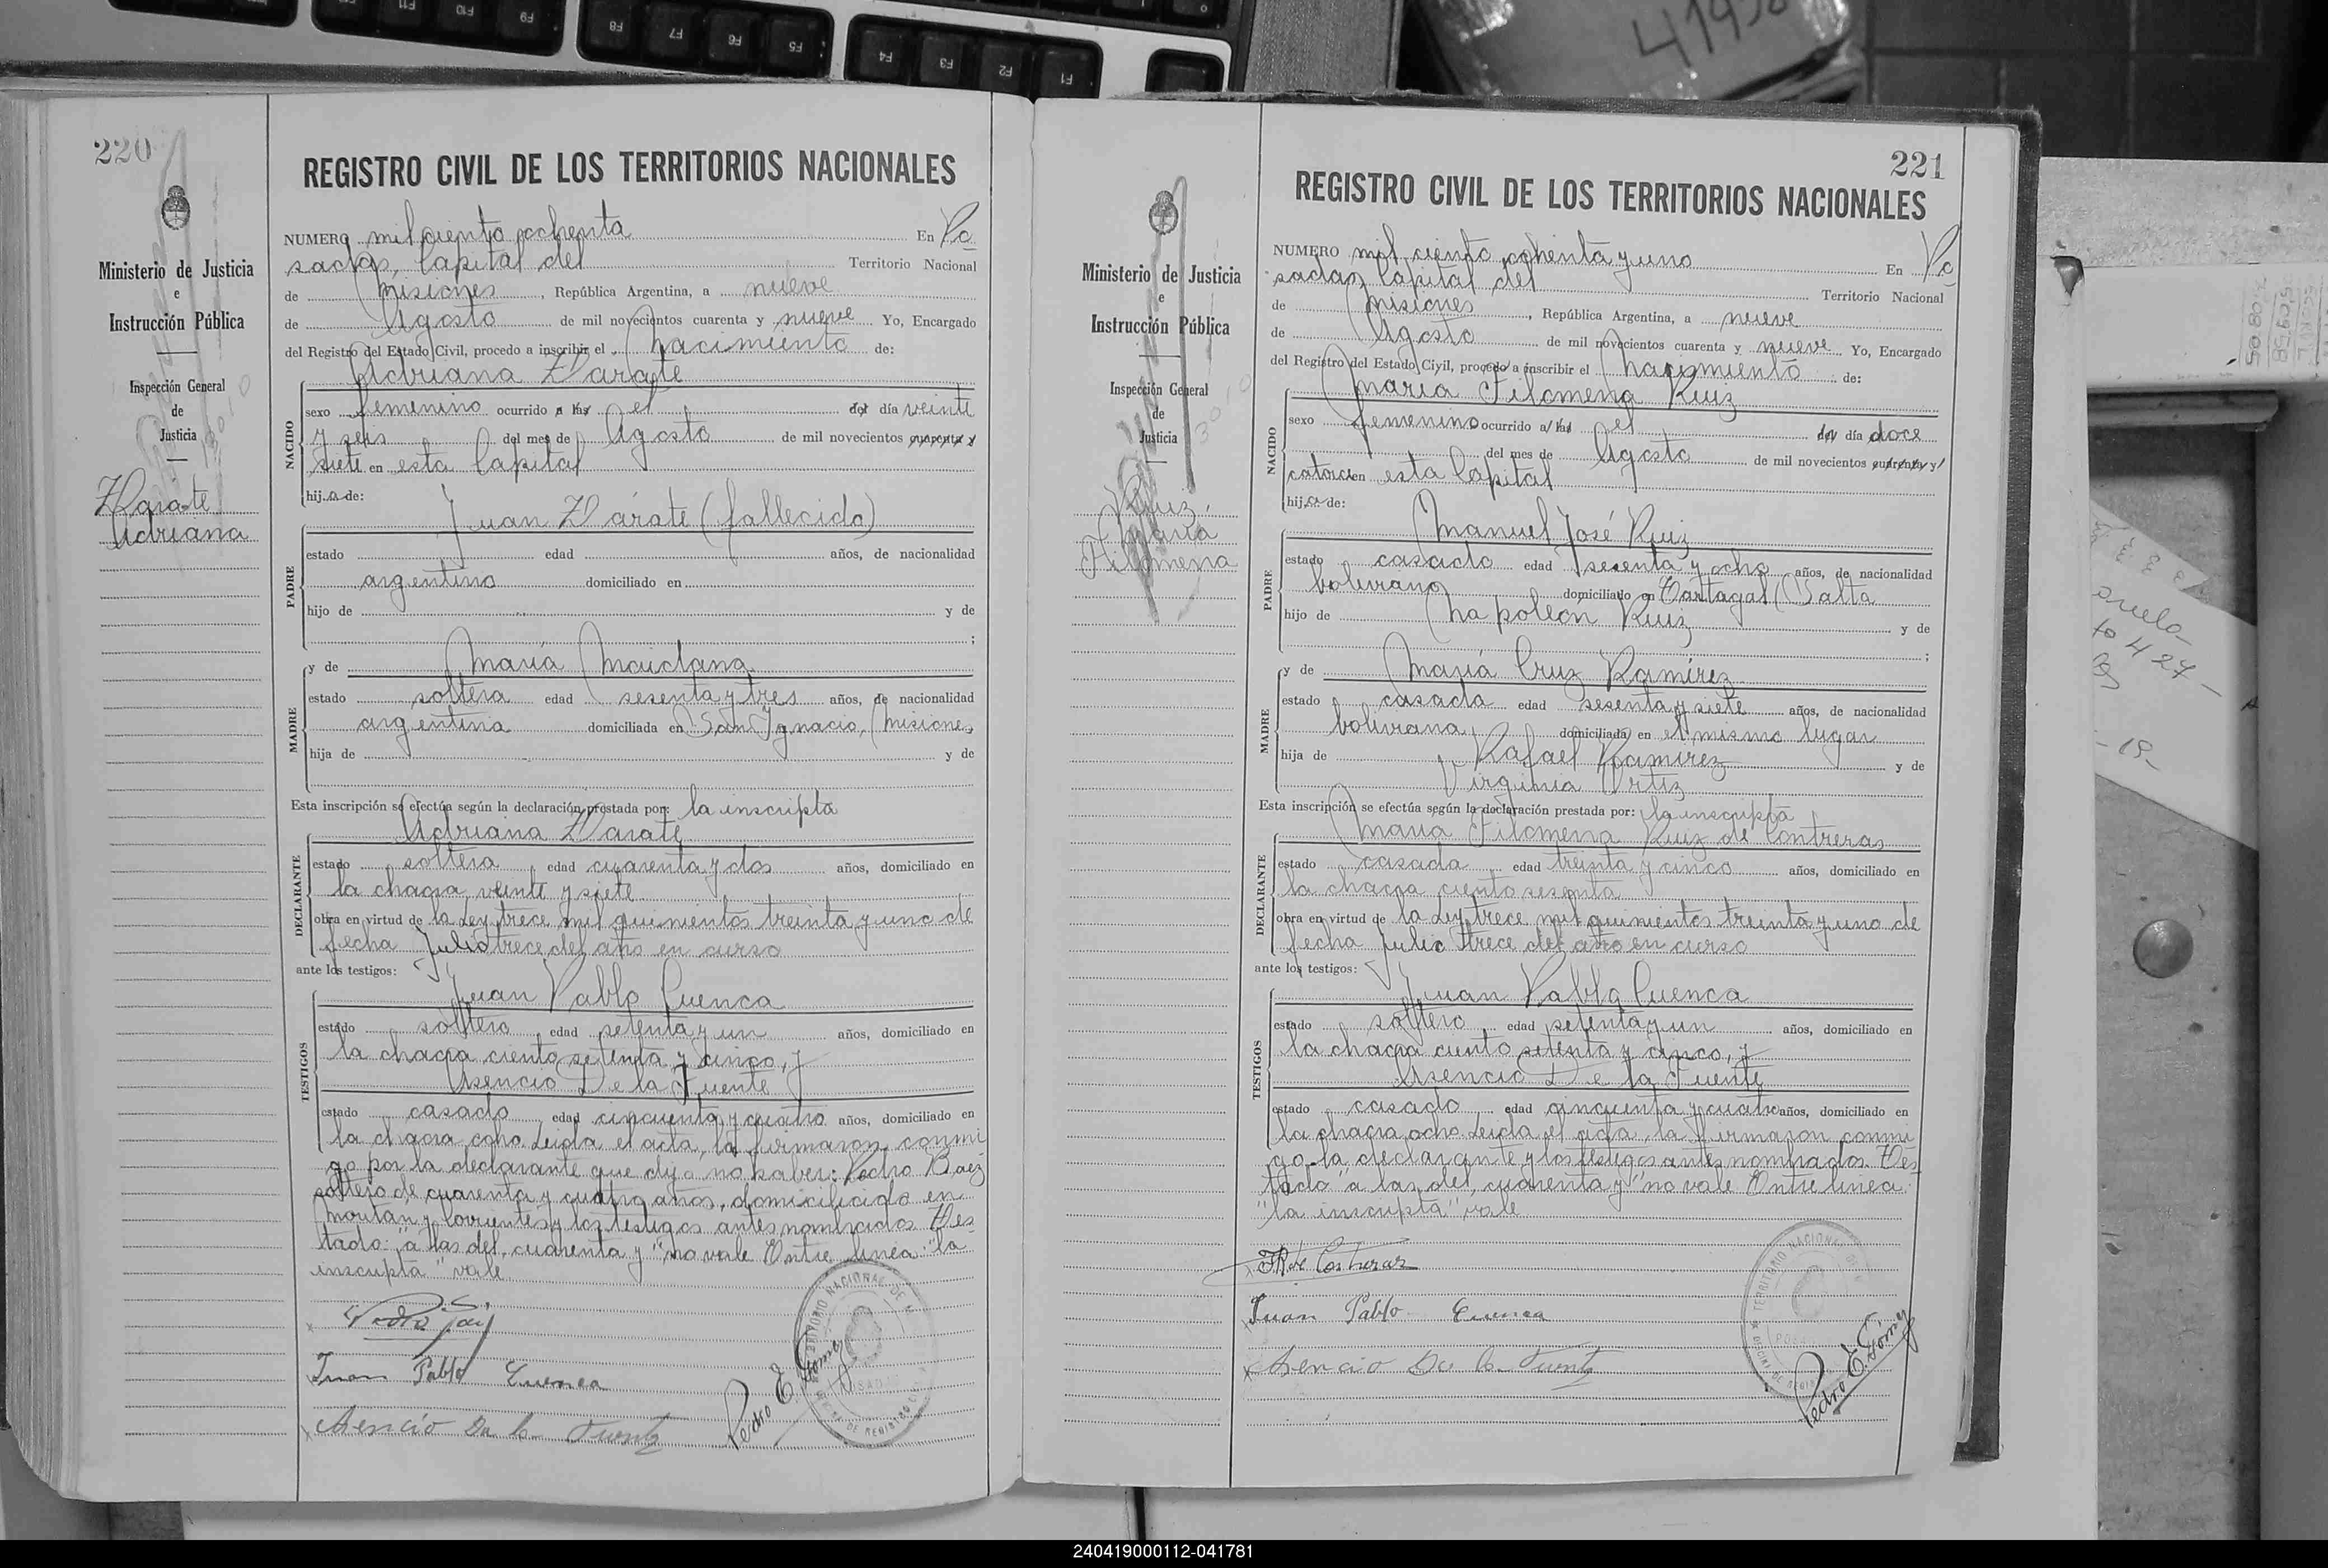 220
REGISTRO CIVIL DE LOS TERRITORIOS NACIONALES
Ministerio de Justicia
e
Instrucción Pública
Inspección General
de
Justicia
Zárate
Adriana
NUMERO mil ciento ochenta En Po
sadas, Capital del Territorio Nacional
de Misiones, República Argentina, a nueve
de Agosto de mil novecientos cuarenta y nueve Yo, Encargado
del Registro del Estado Civil, procedo a inscribir el nacimiento de:
Adriana Zárate
NACIDO
sexo femenino ocurrido a las el del día veinte
y seis del mes de Agosto de mil novecientos cuarenta y
siete en esta Capital
hija de:
Juan Zárate (fallecido)
PADRE
estado edad años, de nacionalidad
argentino domiciliado en
hijo de y de
;
y de María Maidana
MADRE
estado soltera edad sesenta y tres años, de nacionalidad
argentina domiciliada en San Ignacio, Misiones
hija de y de
Esta inscripción se efectúa según la declaración prestada por: la inscripta
Adriana Zárate
DECLARANTE
estado soltera edad cuarenta y dos años, domiciliado en
la chacra veinte y siete
obra en virtud de la Ley trece mil quinientos treinta y uno de
fecha Julio trece del año en curso
ante los testigos:
Juan Pablo Cuenca
TESTIGOS
estado soltero edad setenta y un años, domiciliado en
la chacra ciento setenta y cinco, y
Asencio De la Fuente
estado casado edad cincuenta y cuatro años, domiciliado en
la chacra ocho Leida el acta, la firmaron conmi
go por la declarante que dijo no saber: Pedro Baez
soltero de cuarenta y cuatro años, domiciliado en
y Corrientes y los testigos antes nombrados Tes
tado: "a las del, cuarenta y" no vale Entre linea: "la
inscripta" vale
Juan Pablo Cuenca
Asencio De la Fuente
Pedro E. Gómez
221
REGISTRO CIVIL DE LOS TERRITORIOS NACIONALES
Ministerio de Justicia
e
Instrucción Pública
Inspección General
de
Justicia
Ruiz,
María
Filomena
NUMERO mil ciento ochenta y uno En Po
sadas, Capital del Territorio Nacional
de Misiones, República Argentina, a nueve
de Agosto de mil novecientos cuarenta y nueve Yo, Encargado
del Registro del Estado Civil, procedo a inscribir el nacimiento de:
María Filomena Ruiz
NACIDO
sexo femenino ocurrido a las el del día doce
del mes de Agosto de mil novecientos cuarenta y
catorce en esta Capital
hija de:
Manuel José Ruiz
PADRE
estado casado edad sesenta y ocho años, de nacionalidad
boliviano domiciliado en Tartagal (Salta
hijo de Napoleón Ruiz y de
;
y de María Cruz Ramírez
MADRE
estado casada edad sesenta y siete años, de nacionalidad
boliviana domiciliada en el mismo lugar
hija de Rafael Ramírez y de
Virginia Ortiz
Esta inscripción se efectúa según la declaración prestada por: la inscripta
María Filomena Ruiz de Contreras
DECLARANTE
estado casada edad treinta y cinco años, domiciliado en
la chacra ciento sesenta
obra en virtud de la Ley trece mil quinientos treinta y uno de
fecha Julio trece del año en curso
ante los testigos:
Juan Pablo Cuenca
TESTIGOS
estado soltero edad setenta y un años, domiciliado en
la chacra ciento setenta y cinco, y
Asencio De la Fuente
estado casado edad cincuenta y cuatro años, domiciliado en
la chacra ocho Leida el acta, la firmaron conmi
go la declarante y los testigos antes nombrados Tes
tado "a las del, cuarenta y" no vale Entre linea:
"la inscripta" vale
F R de Contreras
Juan Pablo Cuenca
Asencio De la Fuente
Pedro E. Gómez
240419000112-041781